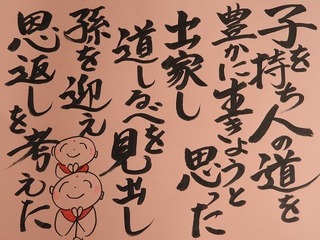 子を持ち人の道を
豊かに生きようと思った
出家し
道しるべを見出し
孫を迎え
恩返しを考えた